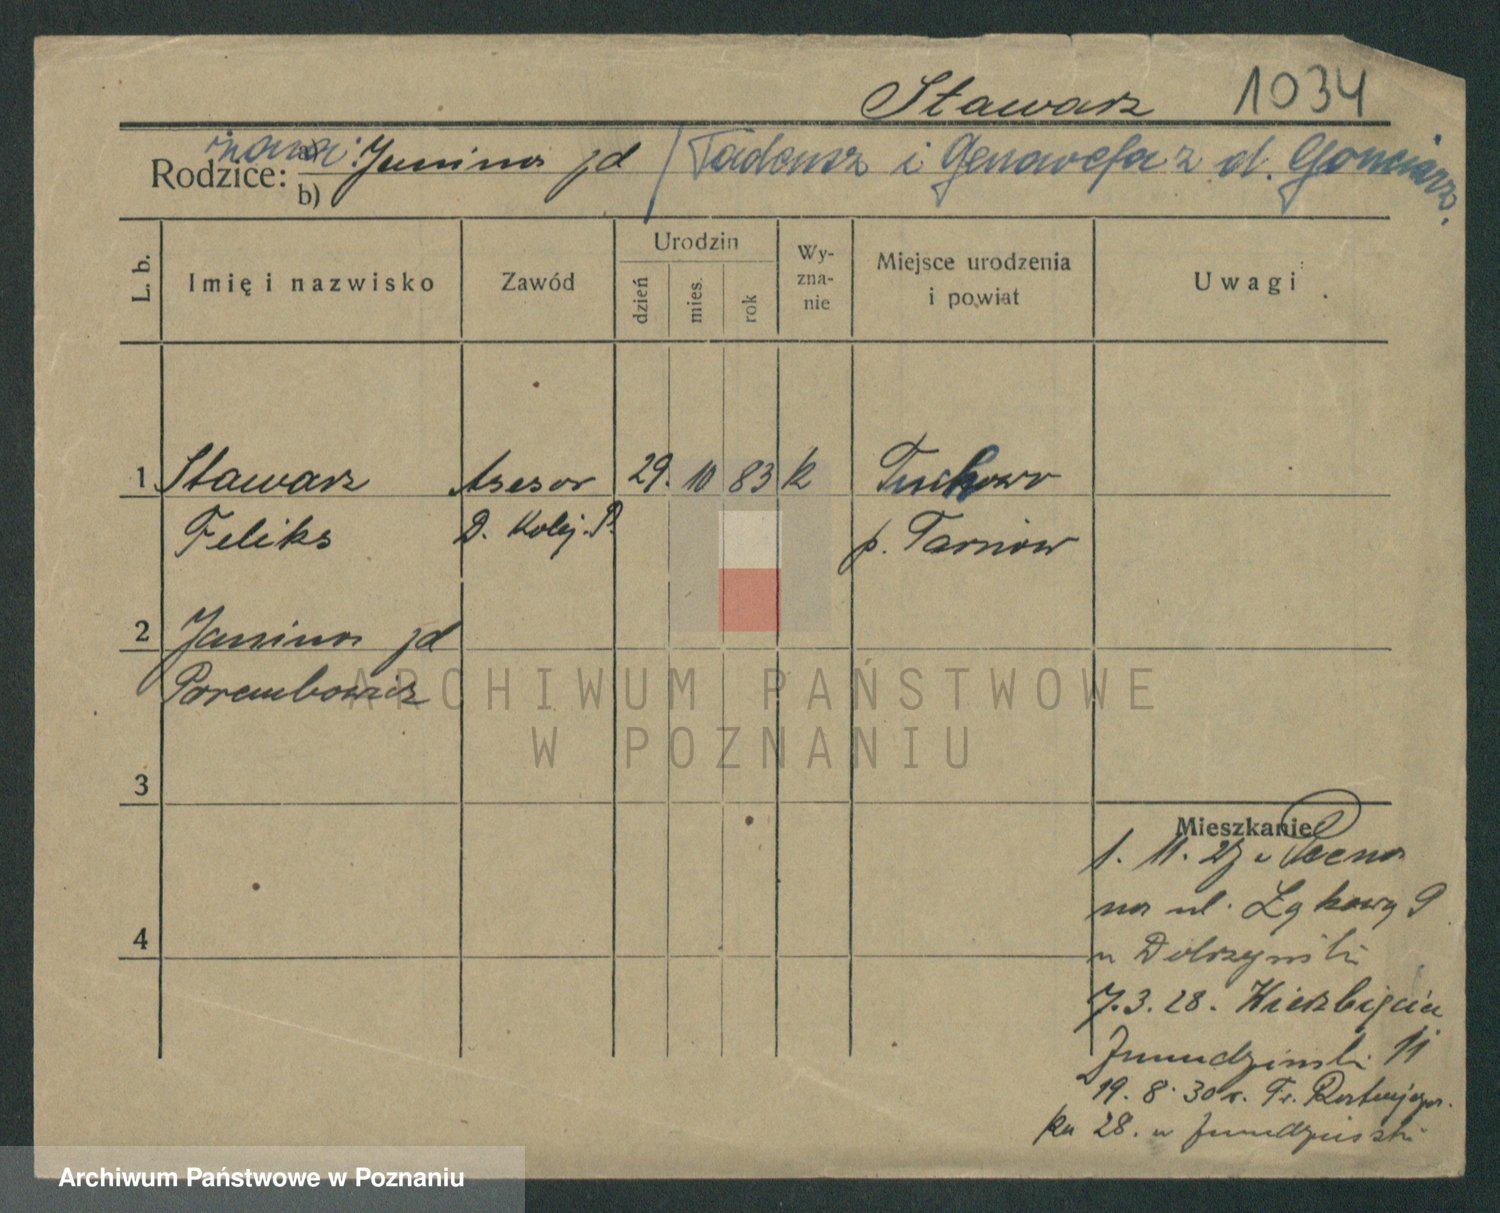 Stawarz 1034
Rodzice: a) żona: Janina jd / Tadeusz i Genowefa z d. Gonciarz.
b)
L. b. Imię i nazwisko Zawód Urodzin dzień mies. rok Wy-zna-nie Miejsce urodzenia i powiat Uwagi
1 Stawarz Asesor 29. 10 83 k Tuchowo
Feliks D. Kolej. P. p. Tarnów
2 Janina jd
Porembowicz
ARCHIWUM PAŃSTWOWE
W POZNANIU
3
Mieszkanie
1. 11. 27 z
na ul. Łąkową 9
4
u
7.3.28. Kiedzbięcia
11
19. 8. 30 r. Fr. Ratajcza
ka 28. u
Archiwum Państwowe w Poznaniu